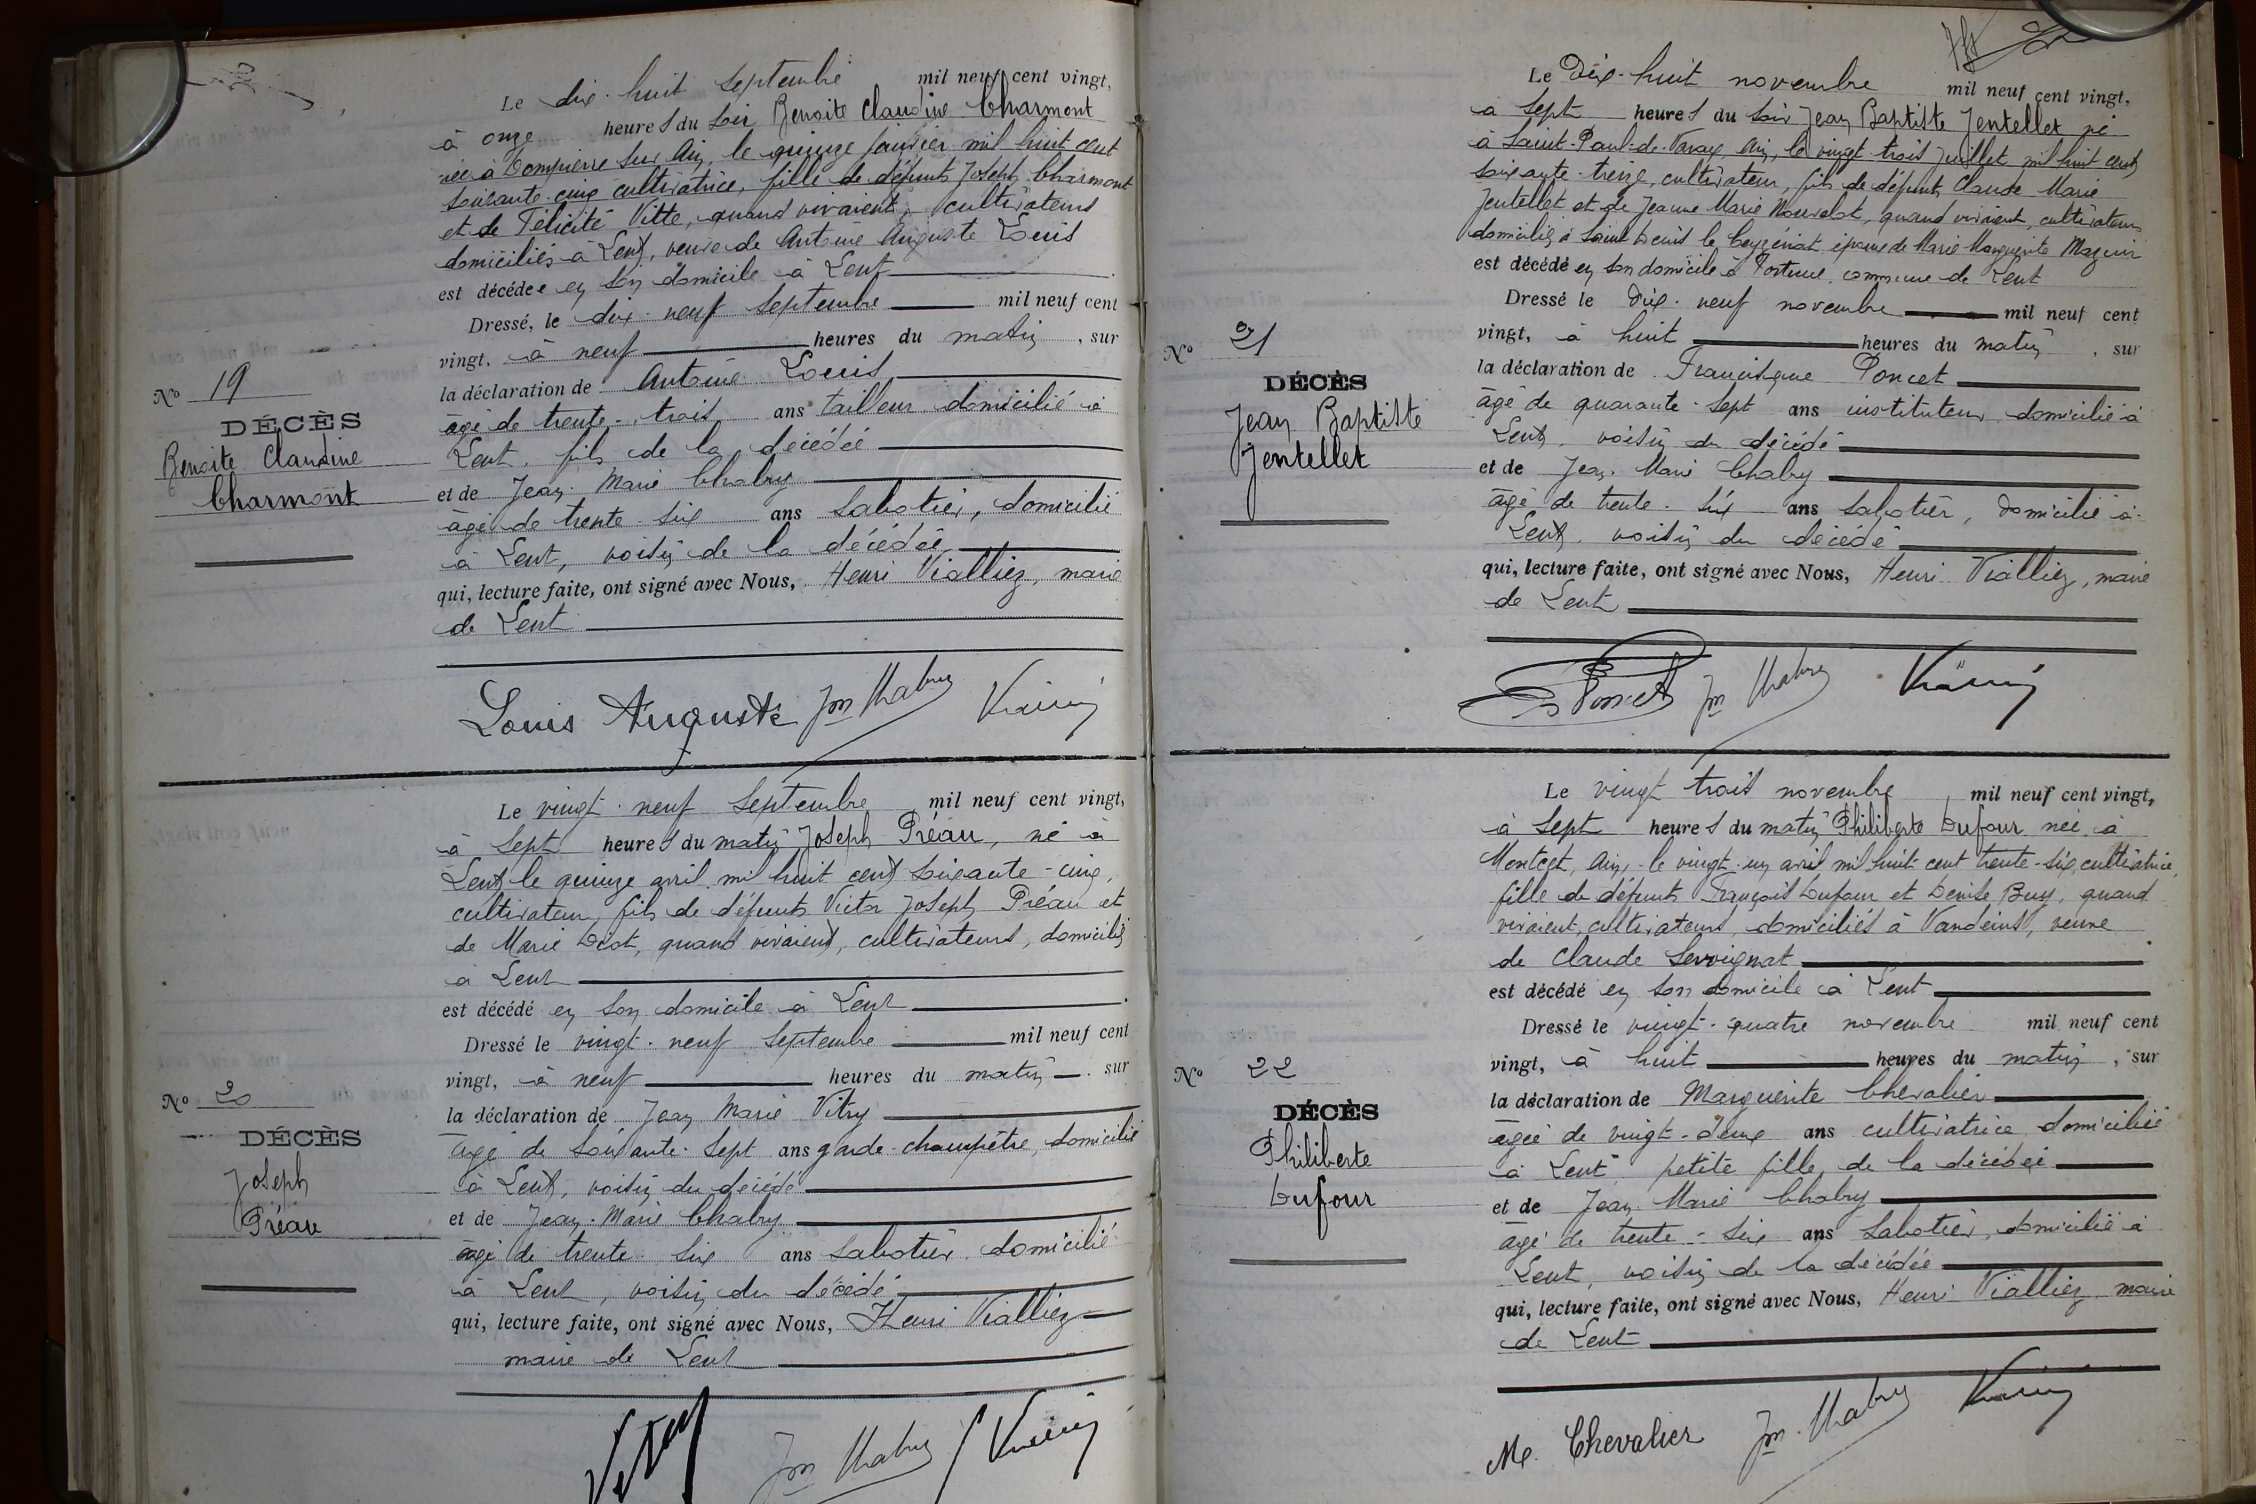 Le dix-huit Septembre mil neuf cent vingt,
à onze heures du soir Benoite Claudine Charmont
née à Dompierre sur Ain, le quinze janvier mil huit cent
soixante-cinq cultivatrice, fille de défunts Joseph Charmont
et de Félicité Vitte, quand vivaient, cultivateurs
domiciliés à Lent, veuve de Antoine Auguste Louis
est décédée en son domicile à Lent
Dressé, le dix-neuf Septembre mil neuf cent
vingt, à neuf heures du matin, sur
la déclaration de Antoine Louis
âgé de trente-trois ans tailleur domicilié à
Lent, fils de la décédée
et de Jean-Marie Chabry
âgé de trente-six ans Sabotier, domicilié
à Lent, voisin de la décédée
qui, lecture faite, ont signé avec Nous, Henri Vialliez, maire
de Lent
Nº 19
DÉCÈS
Benoite Claudine
Charmont
Louis Auguste Jm Chabry
Le vingt-neuf Septembre mil neuf cent vingt,
à Sept heures du matin Joseph Préau, né à
Lent, le quinze avril mil huit cent soixante-cinq,
cultivateur, fils de défunts Victor Joseph Préau et
de Marie Diot, quand vivaient, cultivateurs, domiciliés
à Lent
est décédé en son domicile à Lent
Dressé le vingt-neuf Septembre mil neuf cent
vingt, à neuf heures du matin sur
la déclaration de Jean Marie Vitry
âgé de soixante-sept ans garde-champêtre, domicilié
à Lent, voisin du décédé
et de Jean-Marie Chabry
âgé de trente-six ans Sabotier domicilié
à Lent, voisin du décédé
qui, lecture faite, ont signé avec Nous, Henri Vialliez
maire de Lent
Nº 20
DÉCÈS
Joseph
Préau
Vitry Jm Chabry
Le Dix-huit novembre mil neuf cent vingt,
à Sept heures du soir Jean Baptiste Jentellet né
à Saint-Paul-de-Varax, Ain, le vingt-trois Juillet mil huit cent
soixante-treize, cultivateur, fils de défunts Claude Marie
Jentellet et de Jeanne Marie, quand vivaient, cultivateurs
domiciliés à Saint Denis le Ceyzériat, époux de Marie Marguerite
est décédé en son domicile à, commune de Lent
Dressé le Dix-neuf novembre mil neuf cent
vingt, à huit heures du matin, sur
la déclaration de Francisque Poncet
âgé de quarante-sept ans instituteur domicilié à
Lent, voisin du décédé
et de Jean-Marie Chabry
âgé de trente-six ans sabotier, domicilié à
Lent, voisin du décédé
qui, lecture faite, ont signé avec Nous, Henri Vialliez, maire
de Lent
Nº 21
DÉCÈS
Jean Baptiste
Jentellet
Poncet Jm Chabry
Le vingt trois novembre mil neuf cent vingt,
à Sept heures du matin Philiberte Dufour née à
Montcet, Ain, le vingt-un avril mil huit cent trente-six, cultivatrice,
fille de défunts François Dufour et Denise Buy, quand
vivaient, cultivateurs, domiciliés à Vandeins, veuve
de Claude Servignat
est décédé en son domicile à Lent
Dressé le vingt-quatre novembre mil neuf cent
vingt, à huit heures du matin, sur
la déclaration de Marguerite Chevalier
âgée de vingt-deux ans cultivatrice domiciliée
à Lent petite fille de la décédée
et de Jean-Marie Chabry
âgé de trente-six ans Sabotier, domicilié à
Lent, voisin de la décédée
qui, lecture faite, ont signé avec Nous, Henri Vialliez maire
de Lent
Nº 22
DÉCÈS
Philiberte
Dufour
Me. Chevalier Jm. Chabry